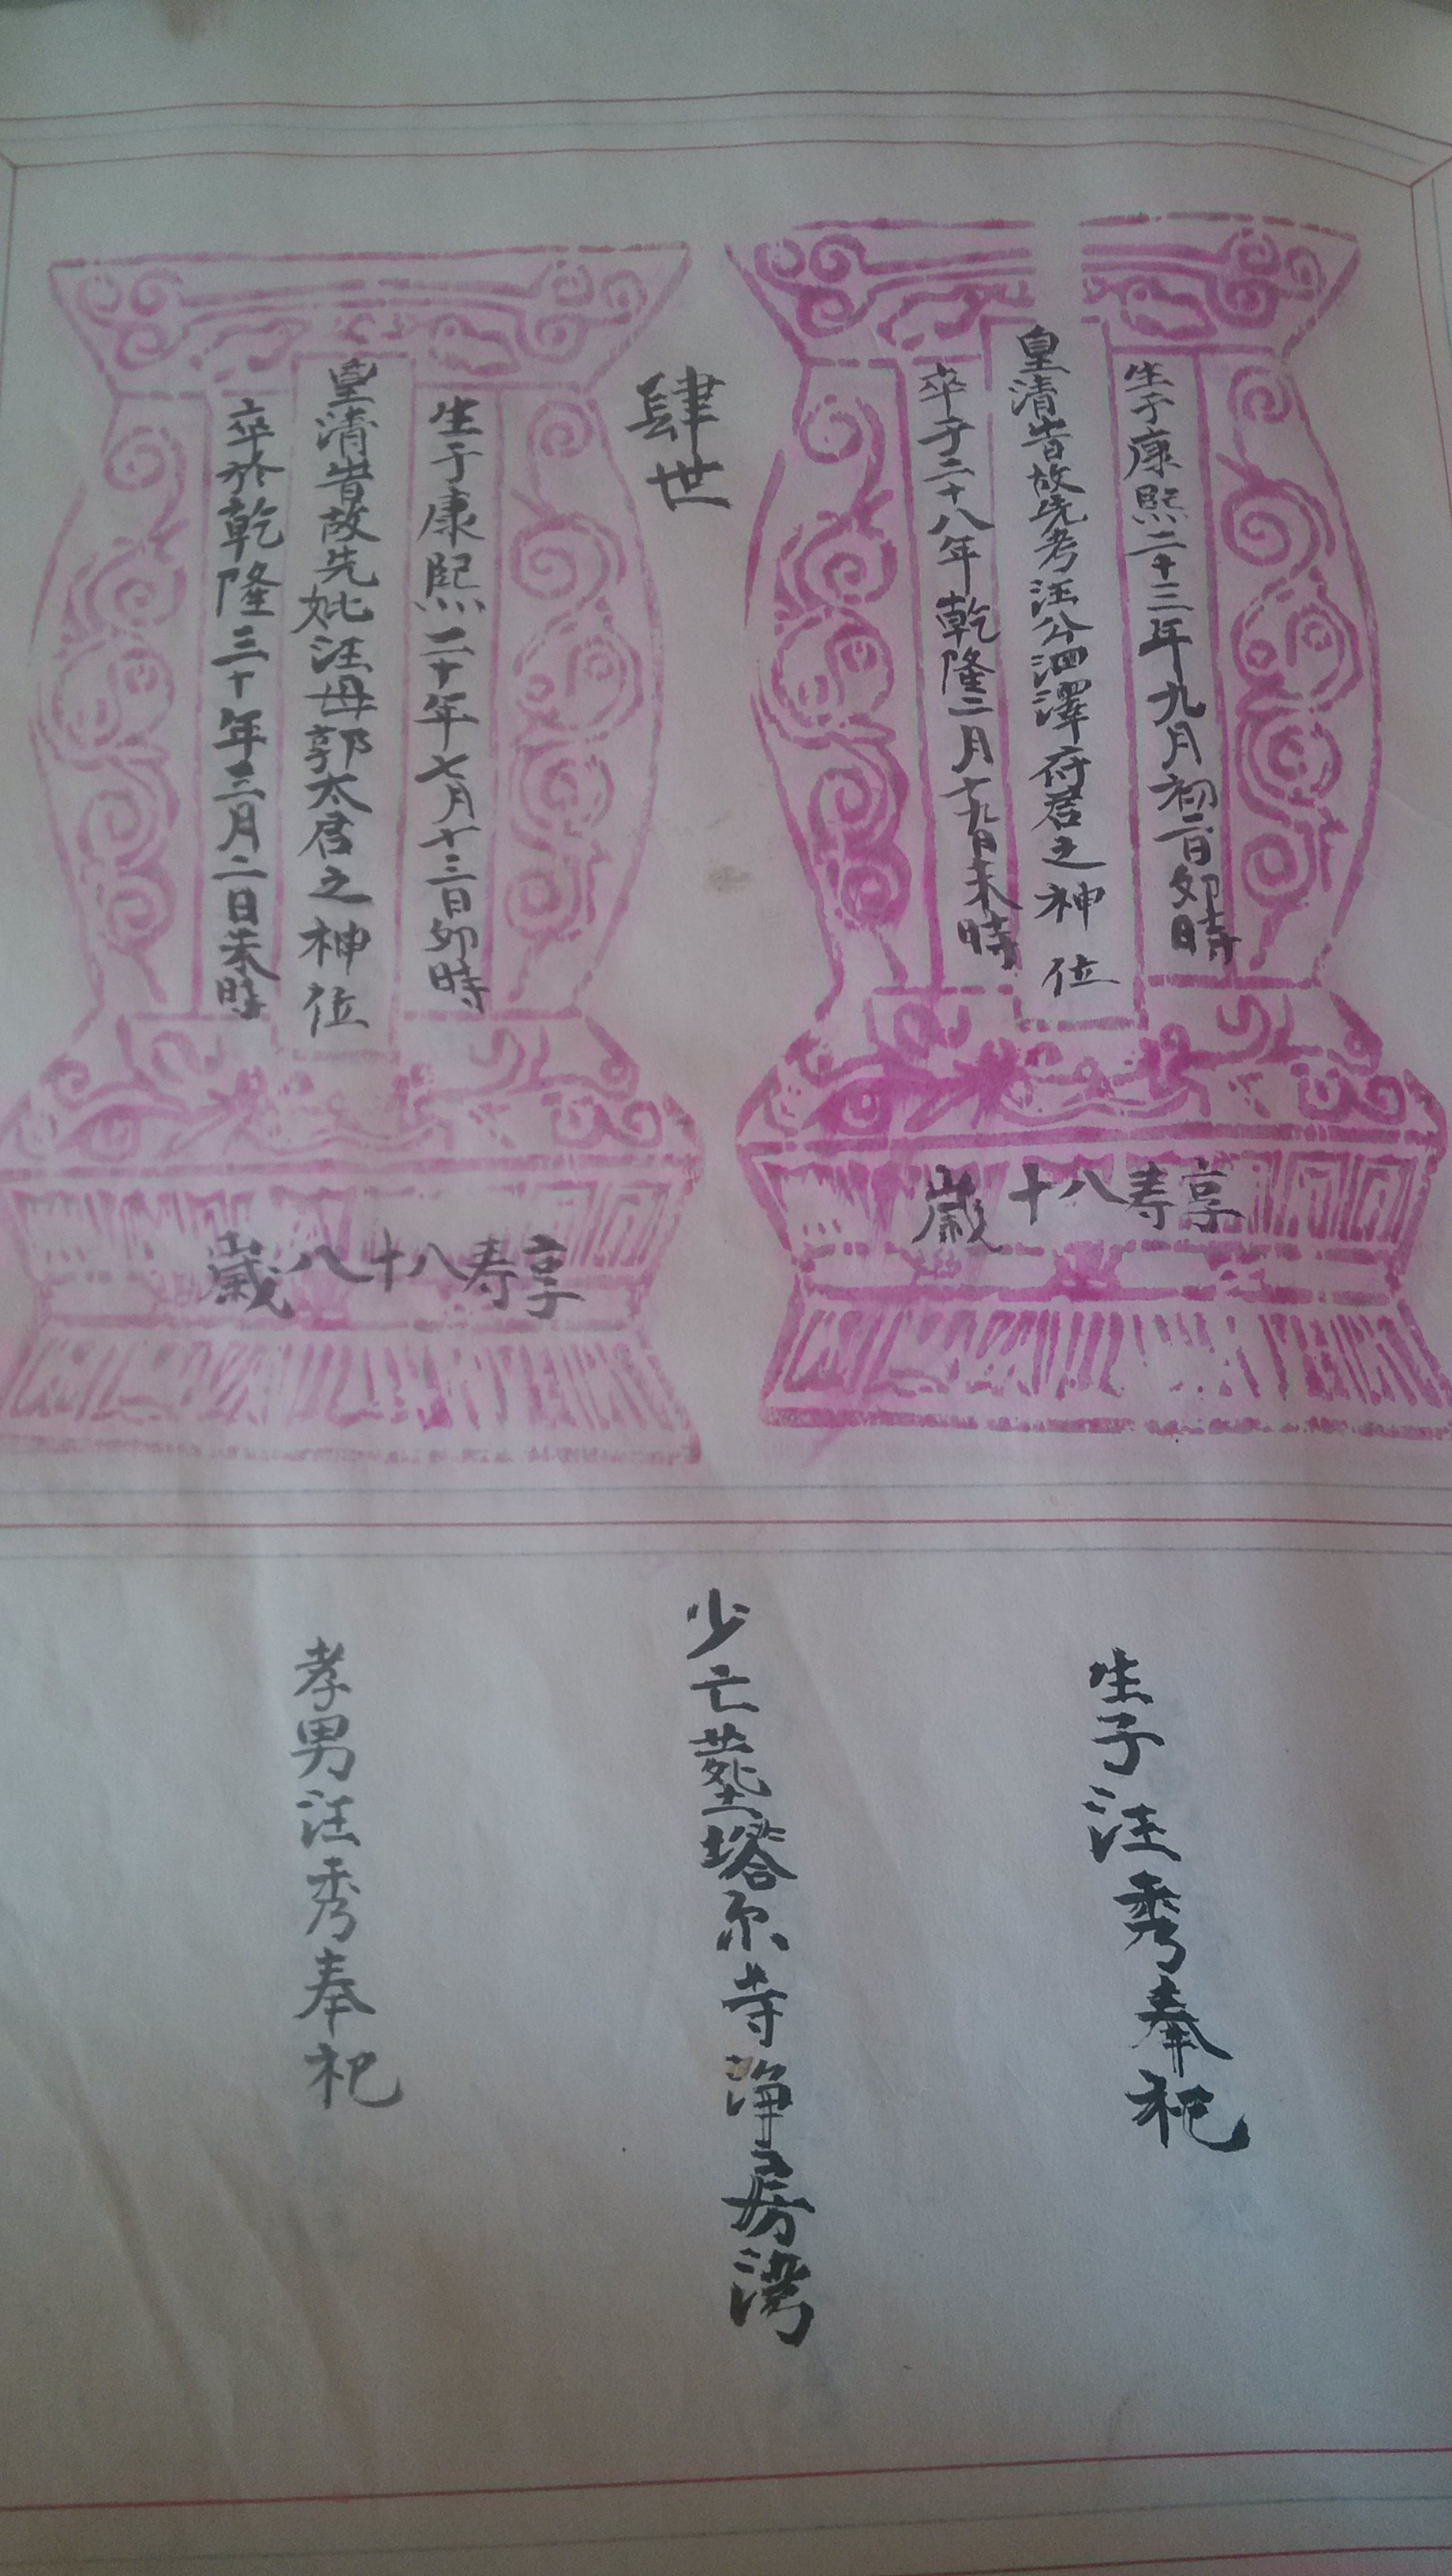 生于康熙二十三年九月初二日卯時
皇清昔故先考汪公泗澤府君之神位
卒于二十八年乾隆二月十九日未時
享寿八十歲
肆世
生于康熙二十年七月十三日卯時
皇清昔故先妣汪母郭太君之神位
卒於乾隆三十年三月二日未時
享寿八十八歲
生子汪秀奉祀
少亡墓塔尔寺浄房湾
孝男汪秀奉祀